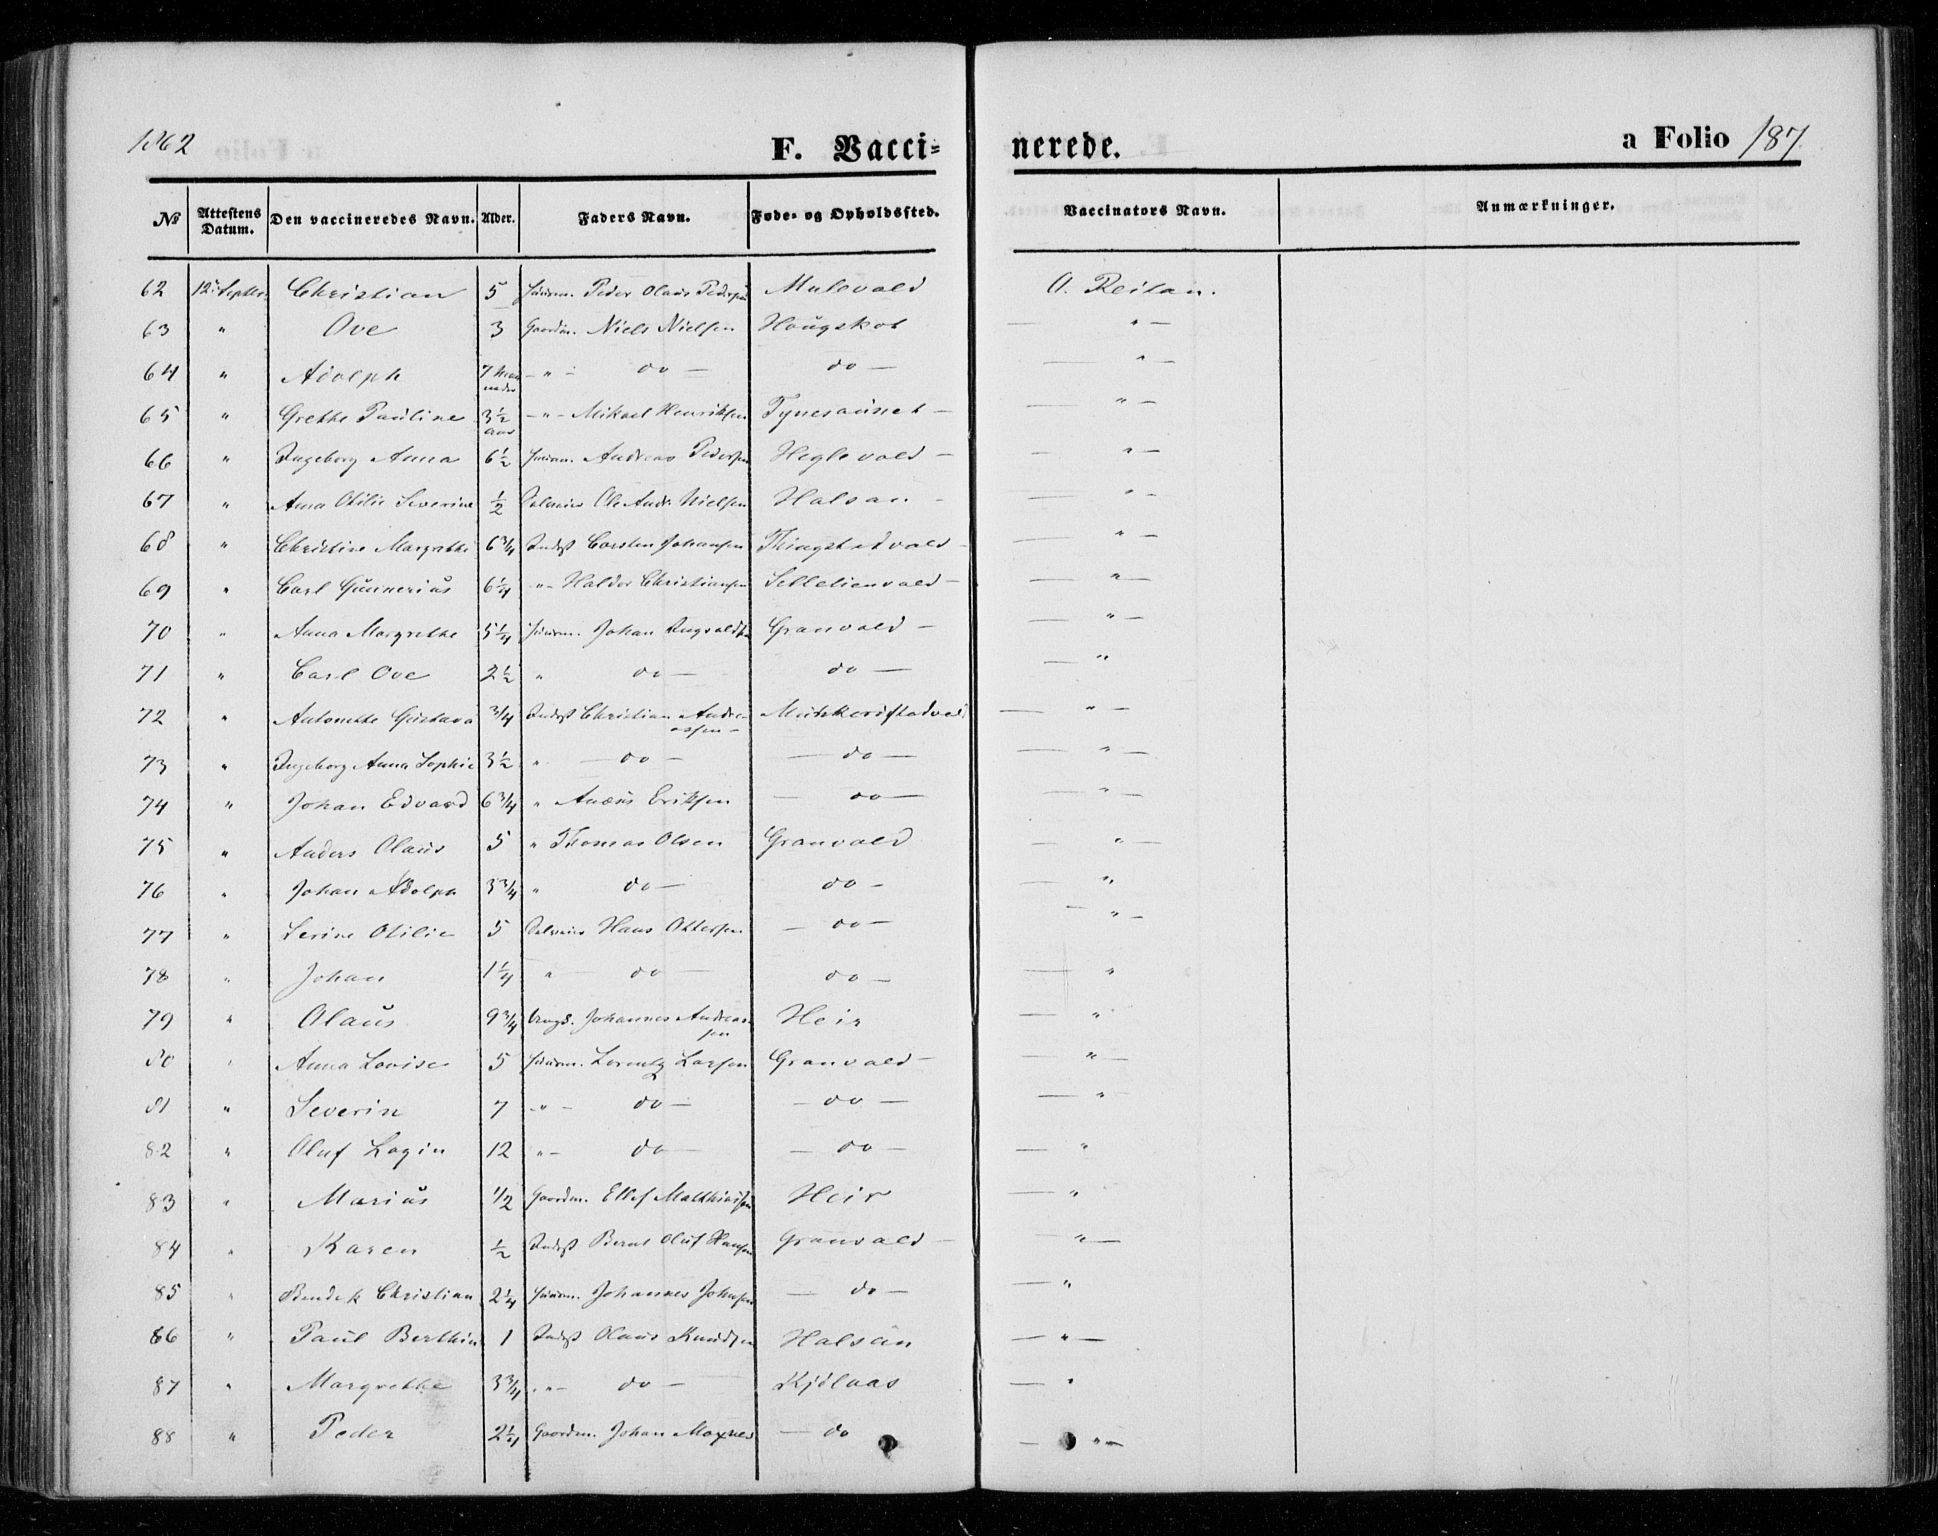 1862 F. Vacci= nerede. a Folio 187.
№ Attestens Datum. Den vaccineredes Navn. Alder. Faders Navn. Føde- og Opholdssted. Vaccinators Navn. Anmærkninger.
62 12. Septbr. Christian 5 Huusm. Peder Olaus Pedersen Mulevald O. Reitan.
63 " Ove 3 Gaardm. Niels Nielsen Hougskot — " —
64 " Adolph 7 Maaneder — " — do — do — — " —
65 " Grethe Pauline 3½ aar — " — Mikael Henriksen Tynesaunet — — " —
66 " Ingeborg Anna 6½ Huusm. Andreas Pedersen Heglevald — — " —
67 " Anna Otilie Severine ½ Ole Andr. Nielsen Halsan — — " —
68 " Christine Margrethe 6¾ Inderst Carsten Johansen Thingstedvald — — " —
69 " Carl Gunnerius 6¼ " — Haldor Christiansen Selletienvald — — " —
70 " Anna Margrethe 5¼ Huusm. Johan Ingvaldsen Granvald — — " —
71 " Carl Ove 2½ " do — do — — "
72 " Antonette Gustava ¾ Inderst Christian Andreassen — — " —
73 " Ingeborg Anna Sophie 3½ " — do — — do — — " —
74 " Johan Edvard 6¾ " Anæus Eriksen — do — — " —
75 " Anders Olaus 5 " Thomas Olsen Granvald — " —
76 " Johan Adolph 3¾ " do — do — — "
77 " Serine Otilie 5 Hans Ottersen — do — — " —
78 " Johan 1¼ " do — do — — "
79 " Olaus 9¾ Johannes Andreassen Heir — "
80 " Anna Lovise 5 Huusm. Lorentz Larsen Granvald — — " —
81 " Severin 7 " — do — — do — — "
82 " Oluf Lagin 12 " — do — — do — — "
83 " Marius ½ Gaardm. Ellef Matthiassen Heir — "
84 " Karen ½ Inderst Bernt Oluf Hansen Granvald — — " —
85 " Bendik Christian 2¼ Huusm. Johannes Johnsen — do — — "
86 " Paul Berthin 1 Inderst Olaus Knudsen Halsan — " —
87 " Margrethe 3¾ " — do — Kjølaas — "
88 " Peder 2¼ Gaardm. Johan Magnus — do — " —